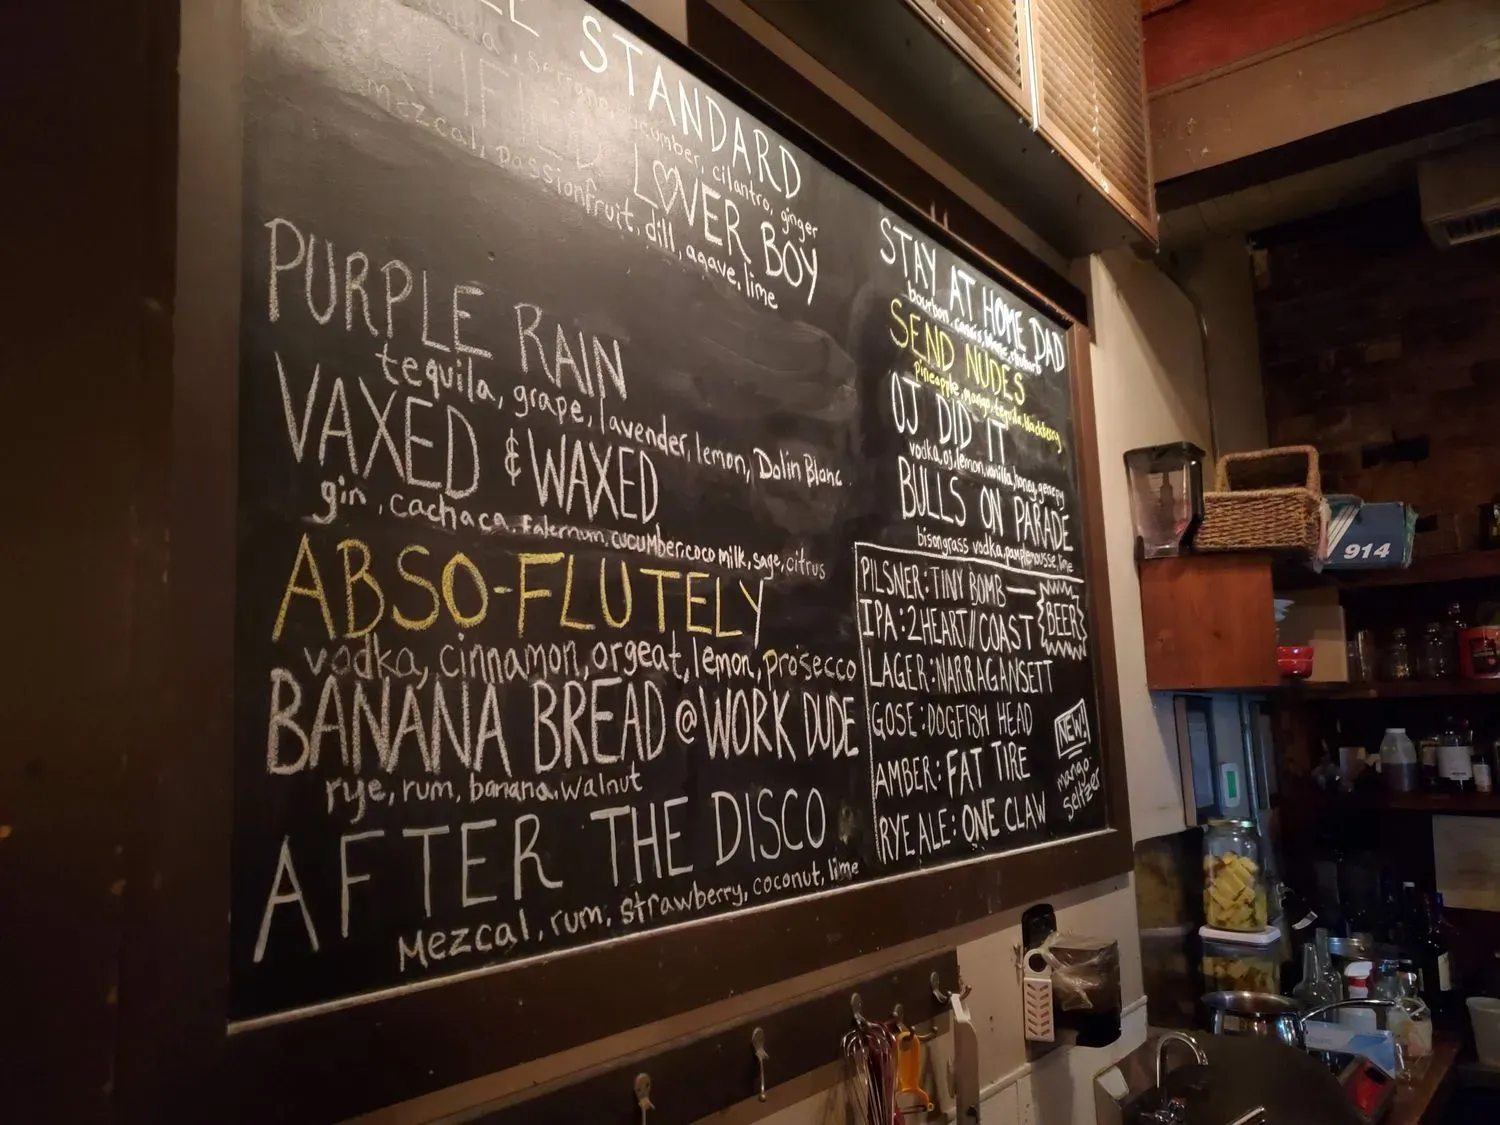 STANDARD
cucumber, cilantro, ginger
LOVER BOY
mezcal, passionfruit, dill, agave, lime
PURPLE RAIN
tequila, grape, lavender, lemon, Dolin Blanc
VAXED & WAXED
gin, cachaca, falernum, cucumber, coco milk, sage, citrus
ABSO-FLUTELY
vodka, cinnamon, orgeat, lemon, prosecco
BANANA BREAD @ WORK DUDE
rye, rum, banana, walnut
AFTER THE DISCO
Mezcal, rum, strawberry, coconut, lime
STAY AT HOME DAD
bourbon,
SEND NUDES
pineapple, mango, tequila, blackberry
OJ DID IT
vodka, oj, lemon, vanilla, honey, genepy
BULLS ON PARADE
bisongrass vodka, pamplemousse, lime
BEER
PILSNER: TINY BOMB
IPA: 2HEART//COAST
LAGER: NARRAGANSETT
GOSE: DOGFISH HEAD
AMBER: FAT TIRE
RYE ALE: ONE CLAW
NEW!
mango
seltzer
914